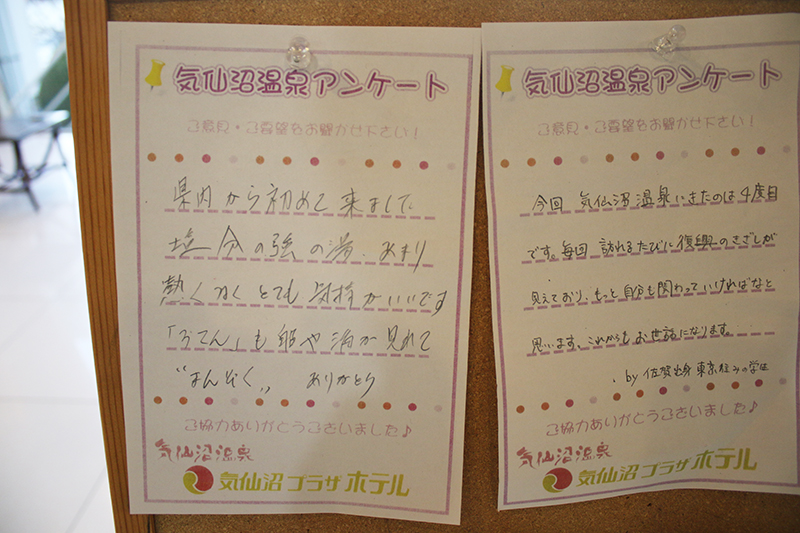 気仙沼温泉アンケート
ご意見・ご要望をお聞かせ下さい!
県内から初めて来まして
塩分の強の湯、あまり
熱くなくとても気持がいいです
「ろてん」も船や海が見れて
"まんぞく" ありがとう
ご協力ありがとうございました♪
気仙沼温泉
気仙沼プラザホテル
気仙沼温泉アンケート
ご意見・ご要望をお聞かせ下さい!
今回 気仙沼温泉にきたのは4度目
です。毎回 訪れるたびに復興のきざしが
見えており、もっと自分も関わっていければなと
思います。これからもお世話になります。
by 佐賀出身東京住みの学生
ご協力ありがとうございました♪
気仙沼温泉
気仙沼プラザホテル